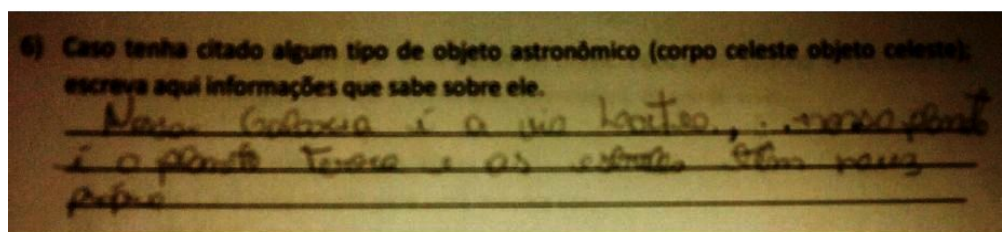 6) Caso tenha citado algum tipo de objeto astronômico (corpo celeste objeto celeste);
escreva aqui informações que sabe sobre ele.
Nossa Galaxia é a via Lactea, nosso planet
é o planeta Terra e as estrelas têm
própria